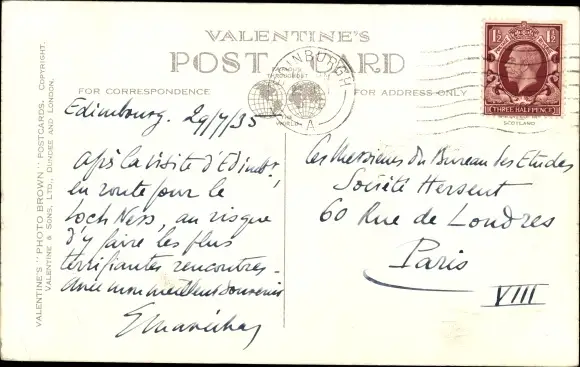 VALENTINE'S
POST CARD
FOR CORRESPONDENCE
FOR ADDRESS ONLY
VALENTINE'S "PHOTO BROWN" POSTCARDS. COPYRIGHT.
VALENTINE & SONS, LTD., DUNDEE AND LONDON.
EDINBURGH
A
1½ 1½
THREE HALFPENCE
SCOTLAND
Edimbourg. 29/7/35
Après la visite d'Edimb.,
en route pour le
Loch Ness, au risque
d'y faire les plus
terrifiantes rencontres -
avec mon meilleur souvenir
Ces Messieurs du Bureau des Etudes
Société Hersent
60 Rue de Londres
Paris
VIII